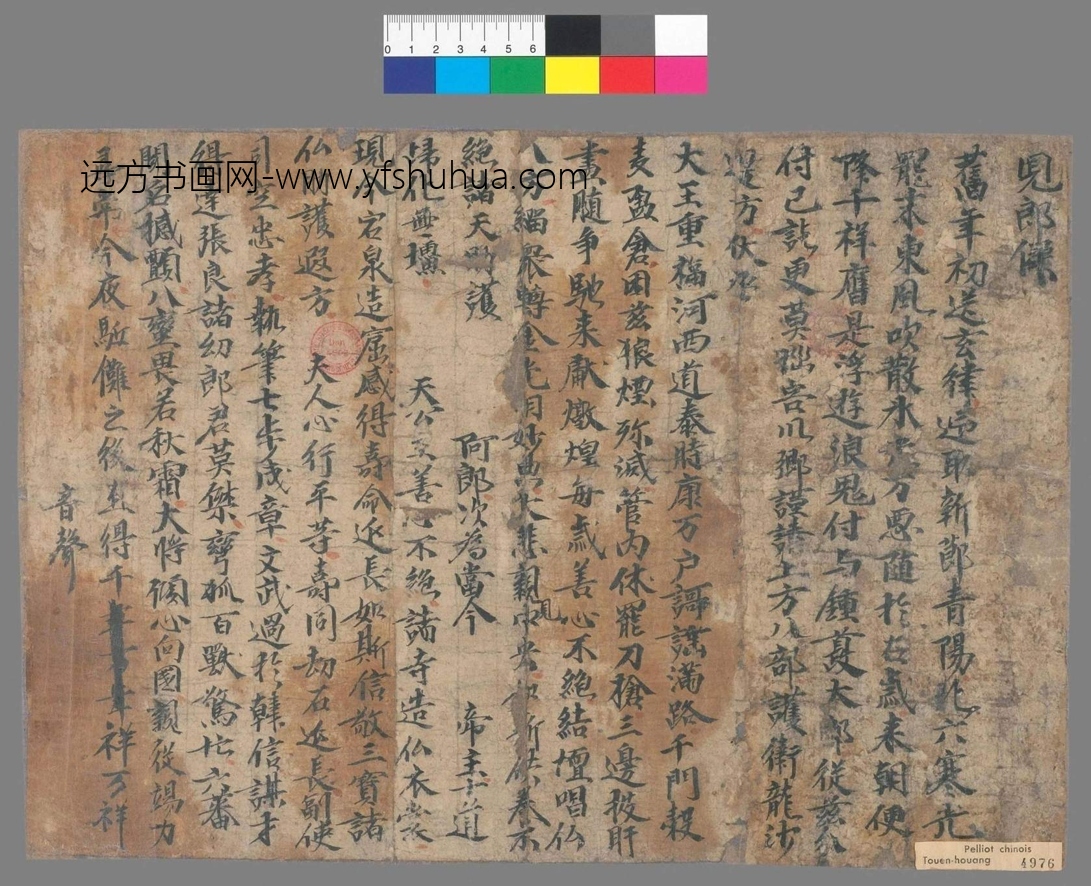 兒郎偉
舊年初送玄律迎取新節青陽北六寒光
罷末東風吹散氷光万惡隨於古歲来朝便
降千祥應是浮遊浪鬼付与鍾夔大郎從兹分
付已訖更莫 吝川鄉謹請上方八部護衛龍沙
邊方伏承
大王重福河西道泰時康万户謌謡滿路千門穀
麦盈倉因兹狼煙殄滅管内休罷刀槍三邊披肝
盡髄争馳来獻燉煌每歲善心不絶結壇唱仏
八方緇衆轉金光明妙典大悲親見中央 如斯供養不
絶諸天助護 阿郎次為當今 帝主十道
歸化無壃 天公主善心不絶諸寺造仏衣裳
現来宕泉造窟感得壽命延長如斯信敬三寳諸
仏護遐方 夫人心行平等壽同劫石延長副使
司空忠孝執筆七步成章文武過於韓信謀才
得達張良諸幼郎君英傑弯弧百獸驚忙六番
聞名撼顫八蠻畏若秋霜大將傾心向國親從竭力
尋常今夜驅儺之後直得千祥万祥
音聲
远方书画网-www.yfshuhua.com
Pelliot chinois
Touen-houang 4976
0 1 2 3 4 5 6